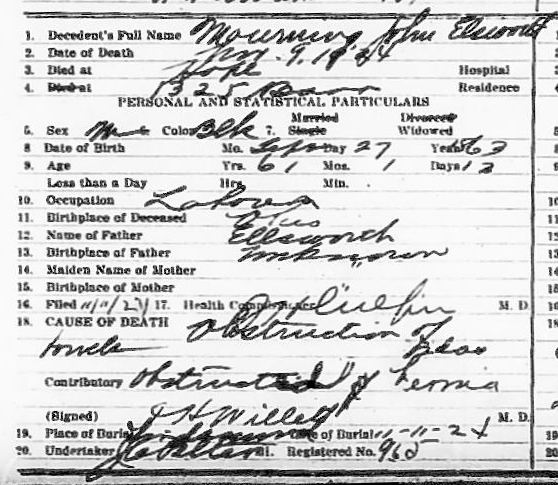 1. Decedent's Full Name Mourning John Ellsworth
2. Date of Death Nov. 9. 1924
3. Died at Hope Hospital
4. Died at 1325 Residence
PERSONAL AND STATISTICAL PARTICULARS
Married Divorced
5. Sex Male Color Blk 7. Single Widowed
8 Date of Birth Mo. Sept Day 27 Year 63
9. Age Yrs. 61 Mos. 1 Days 12
Less than a Day Hrs. Min.
10. Occupation Laborer
11. Birthplace of Deceased
12. Name of Father Ellsworth
13. Birthplace of Father Unknown
14. Maiden Name of Mother
15. Birthplace of Mother
16. Filed 11/11/24 17. Health Commissioner M. D.
18. CAUSE OF DEATH Obstruction of
bowels
Contributory of Hernia
(Signed) H Willett M. D.
19. Place of Burial Date of Burial 11-11-24
20. Undertaker Registered No. 965